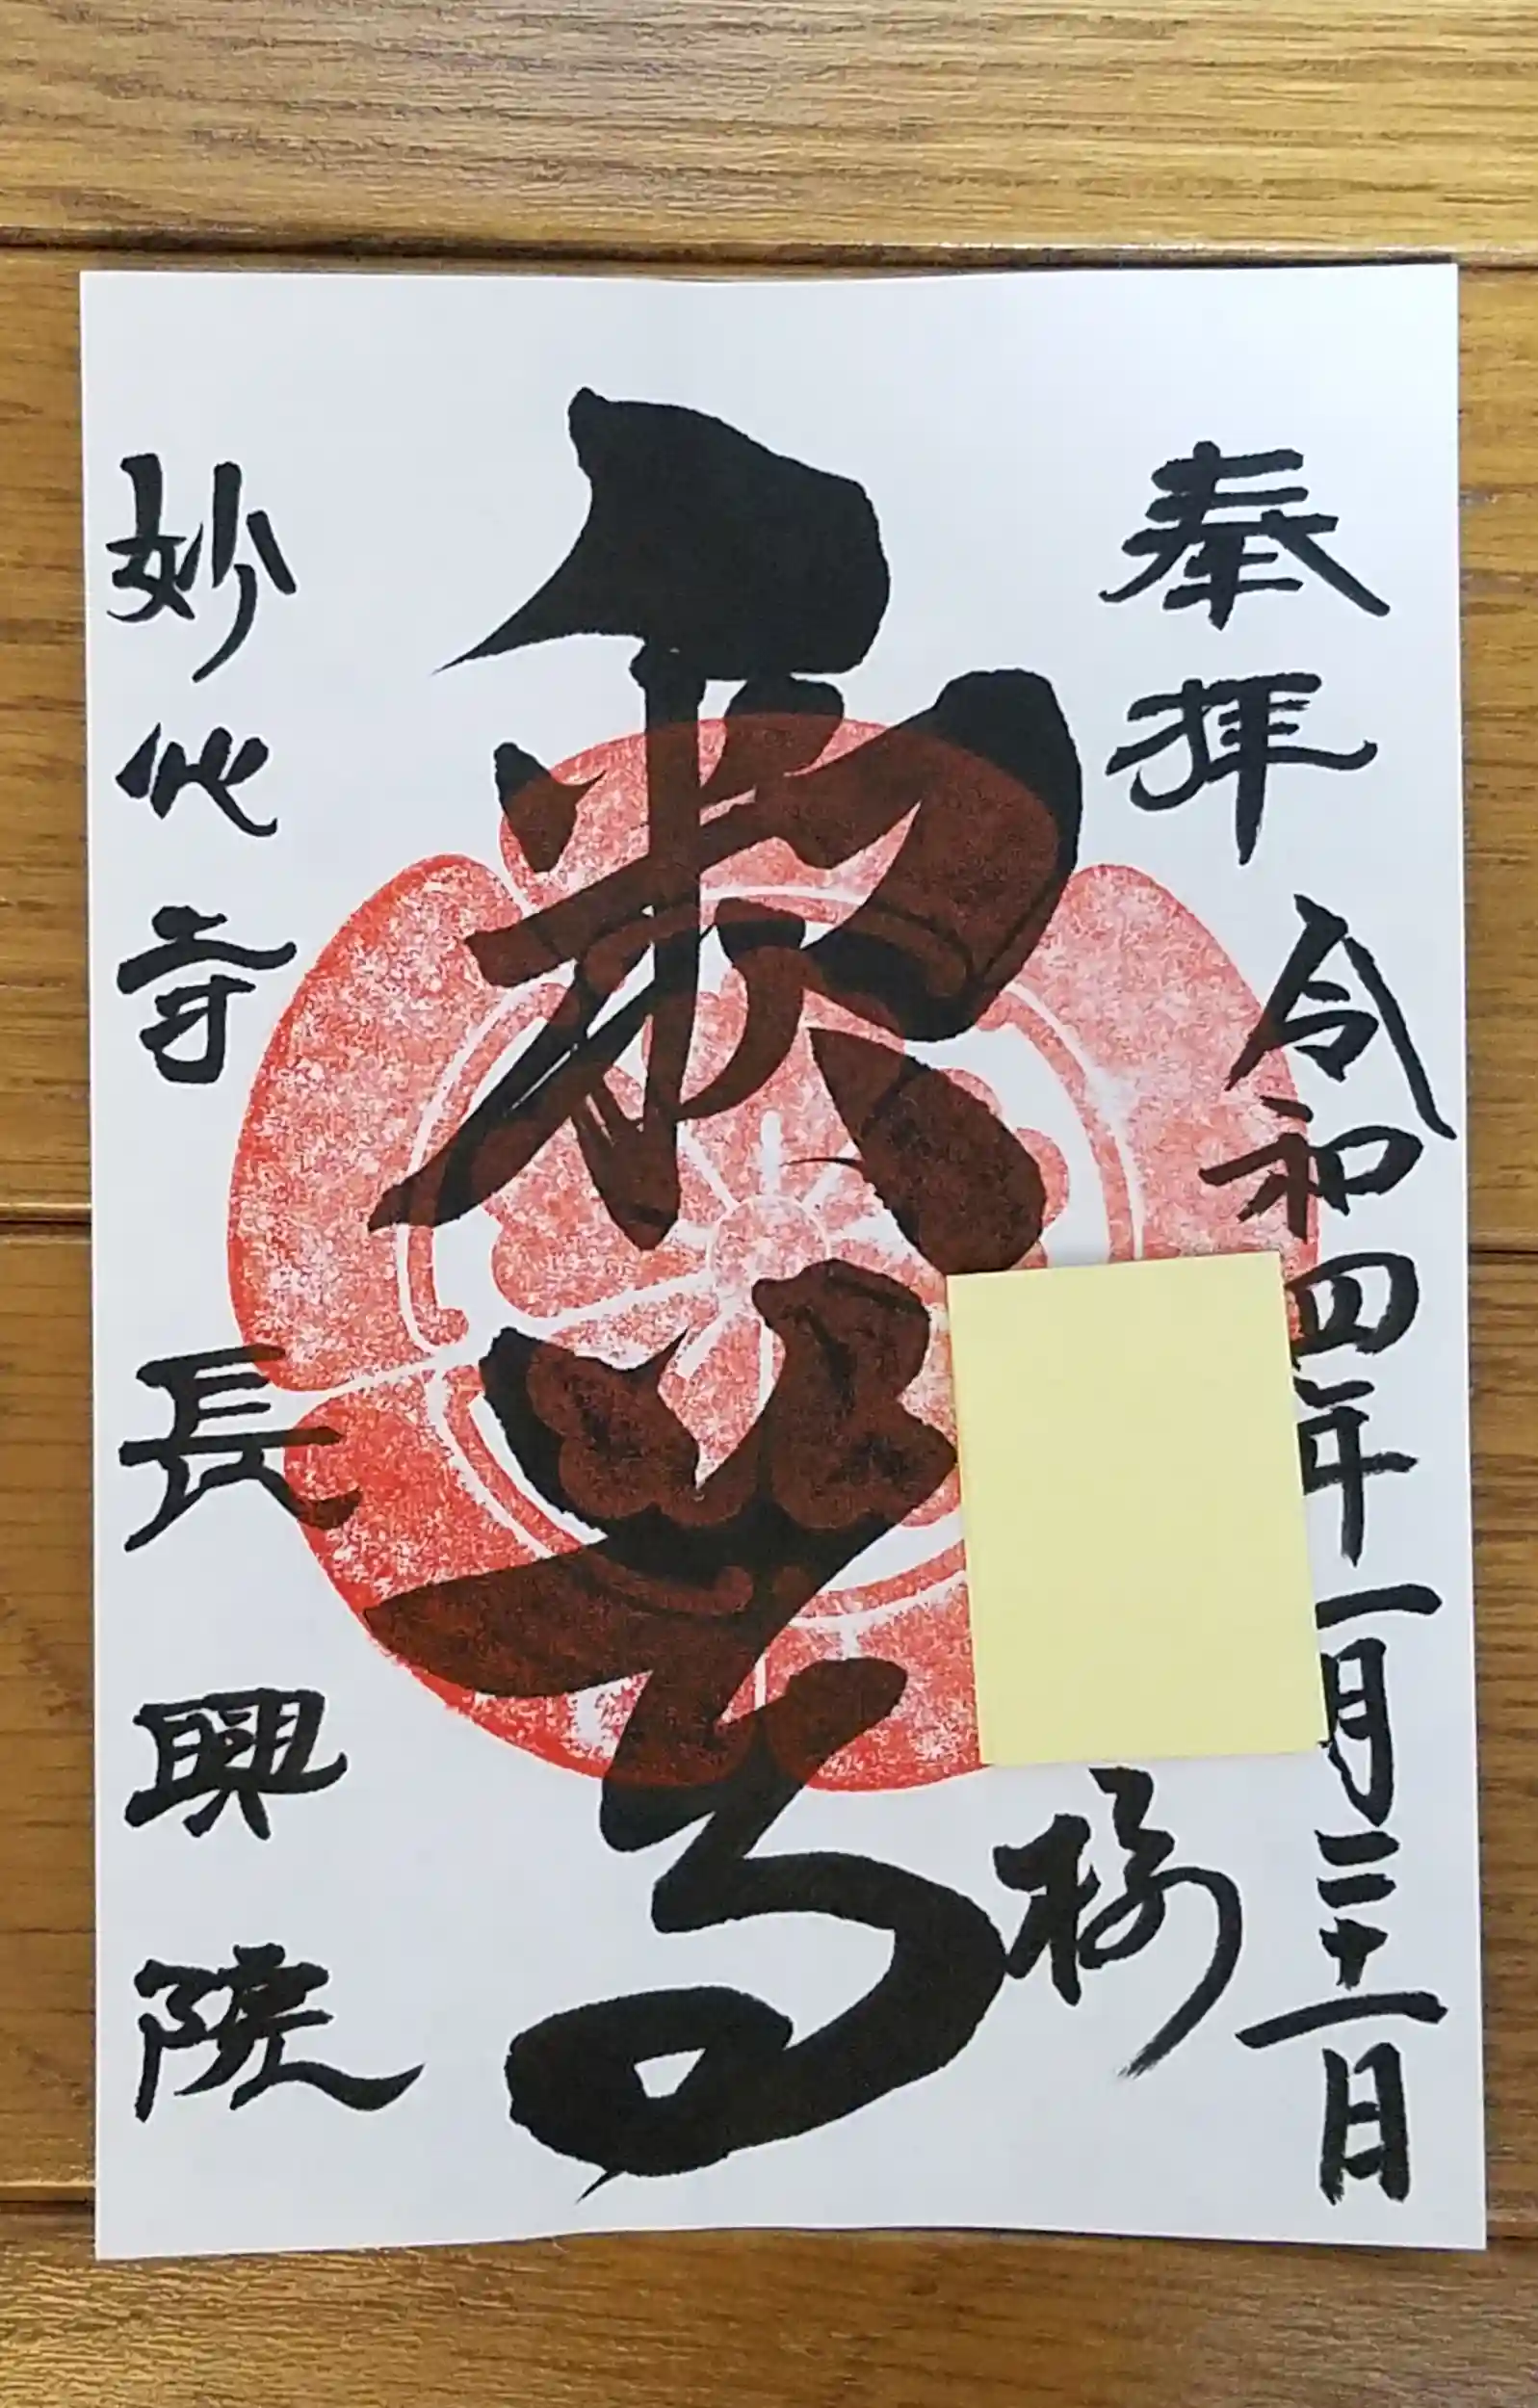 奉拝
令和四年一月二十一日
様
妙心寺
長興院